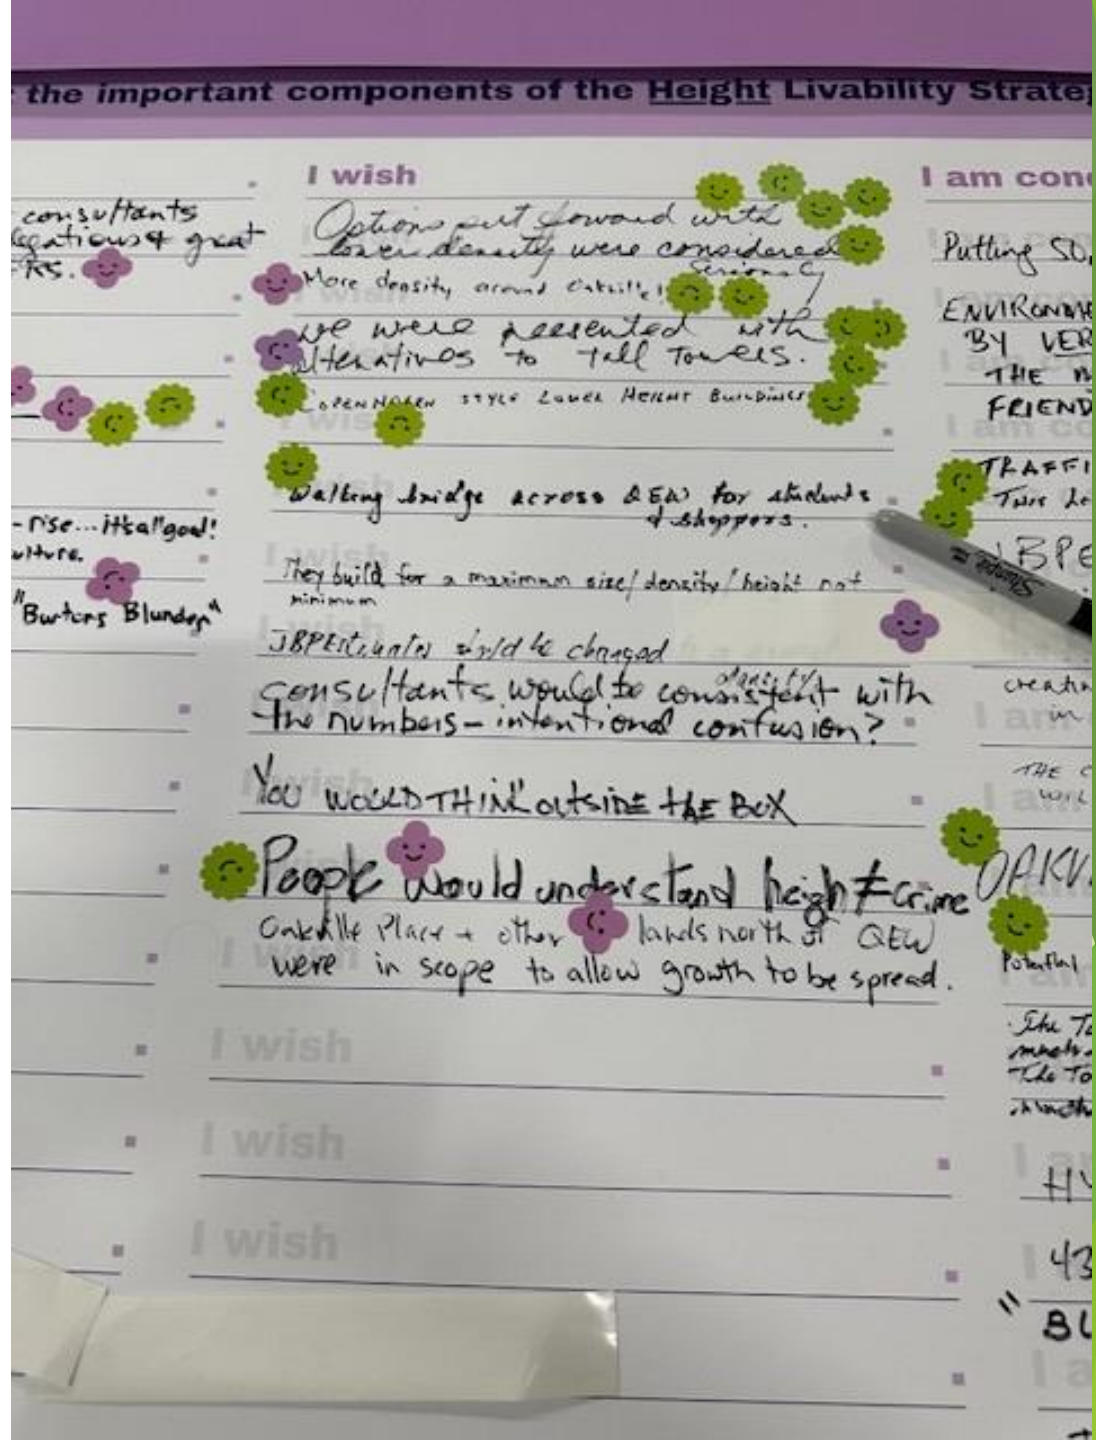 the important components of the Height Livability Strate
consultants
great
I wish
Options put forward with
lower density were considered
Seriously
More density around Oakville!
we were presented with
alternatives to Tall Towers.
COPENHAGEN STYLE LOWER HEIGHT BUILDINGS
Walking bridge across QEW for students
& shoppers.
They build for a maximum size/density/height not
minimum
should be changed
density
consultants would be consistent with
the numbers - intentional confusion?
YOU WOULD THINK OUTSIDE THE BOX
People would understand height ≠ crime
Oakville Place + other lands north of QEW
were in scope to allow growth to be spread.
I wish
I wish
I wish
-rise... it's a "goal!
"Burtons Blunder"
I am con
Putting
ENVIRONME
BY VER
THE
FRIEND
TRAFFI
JBPE
Sharpie
creatin
in
THE
OAKV
Potential
The To
43